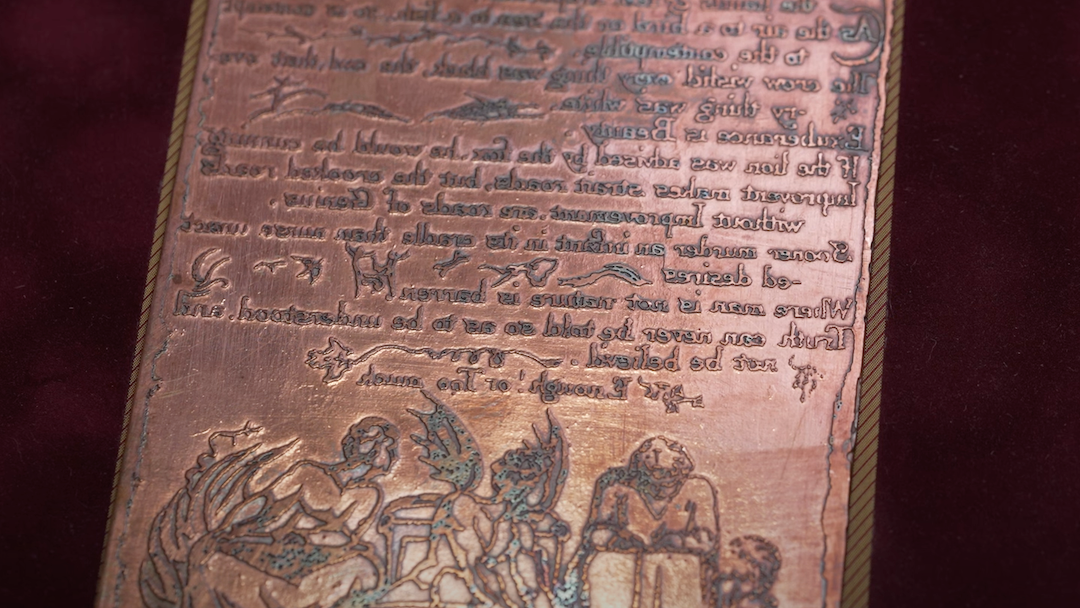 the hands &
As the air to a bird or the sea to a fish, so is contempt
to the contemptible.
The crow wish'd every thing was black, the owl, that eve-
-ry thing was white.
Exuberance is Beauty.
If the lion was advised by the fox. he would be cunning.
Improvent makes strait roads, but the crooked roads
without Improvement, are roads of Genius.
Sooner murder an infant in its cradle than nurse unact-
-ed desires
Where man is not nature is barren.
Truth can never be told so as to be understood, and
not be believ'd.
Enough! or Too much